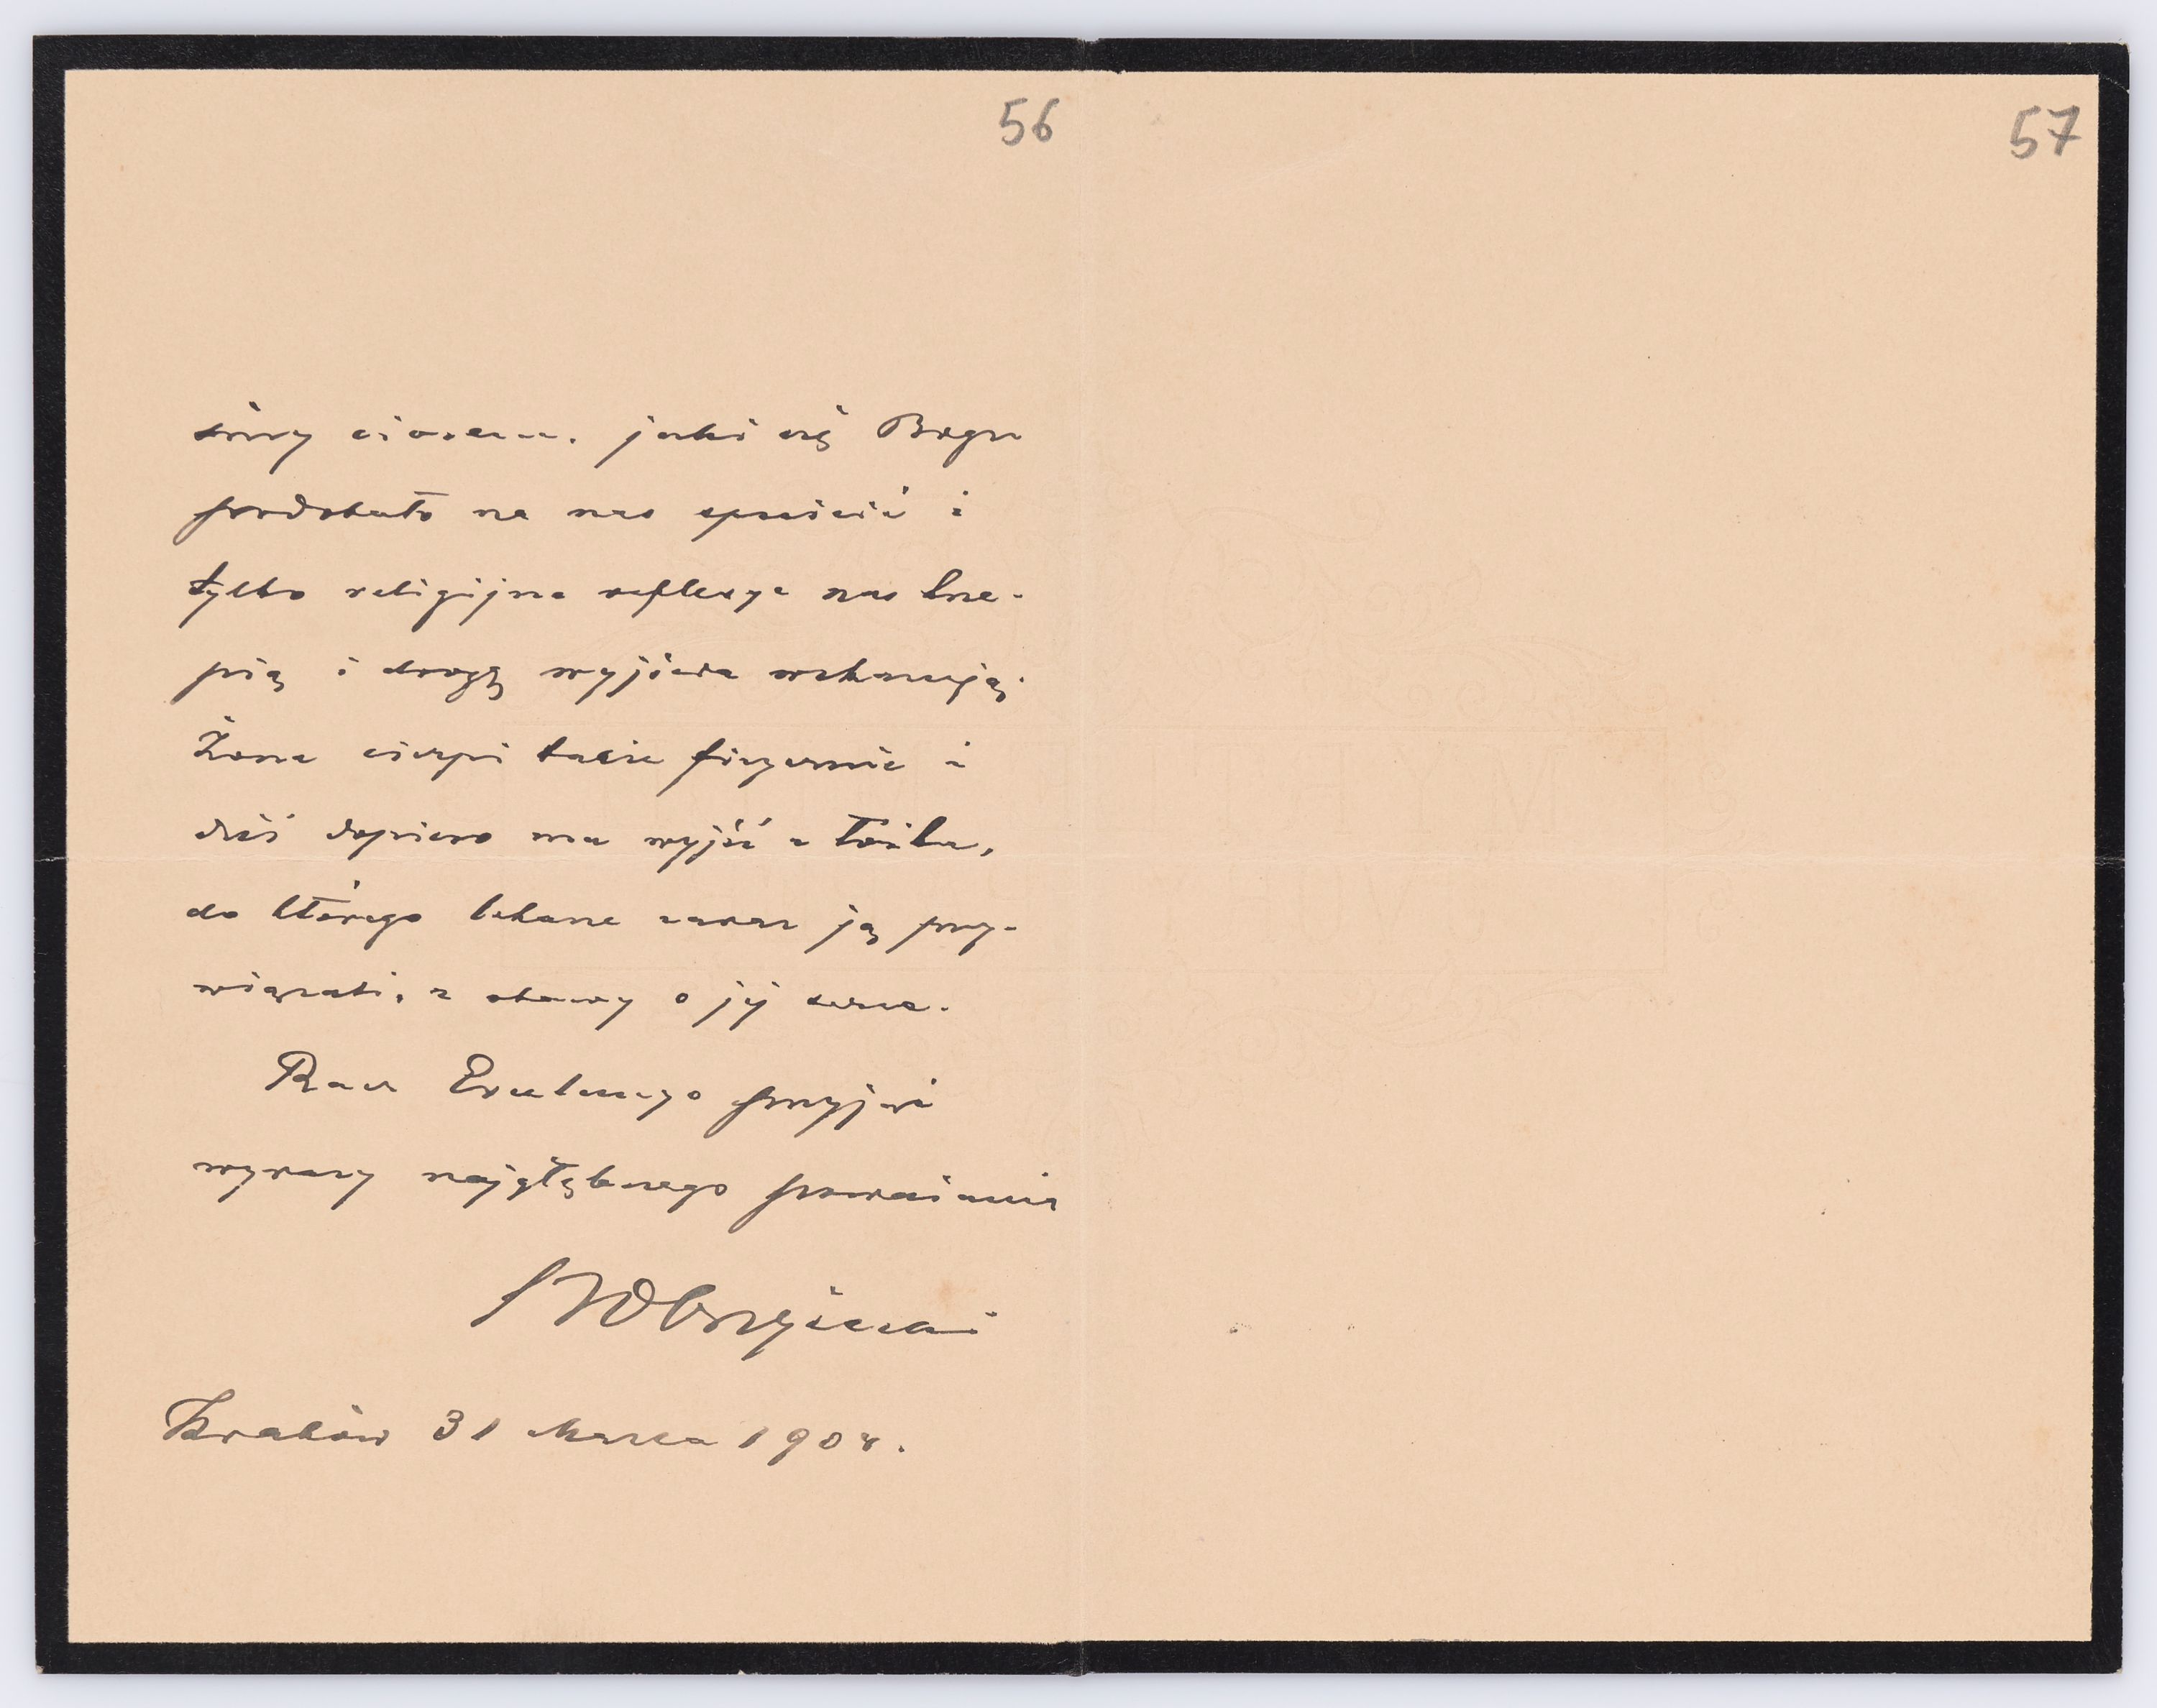 56
57
ciosem, jaki się Bogu
podobało na nas spuścić i
tylko religijne refleksye nas krze-
pią i drogę wyjścia wskazują.
Żona cierpi także fizycznie i
dziś dopiero ma wyjść z łóżka,
do którego lekarze zaraz ją przy-
wiązali, z obawy o jej serce.
Racz przyjąć
wyrazy najgłębszego poważania
Kraków 31 Marca 1904.